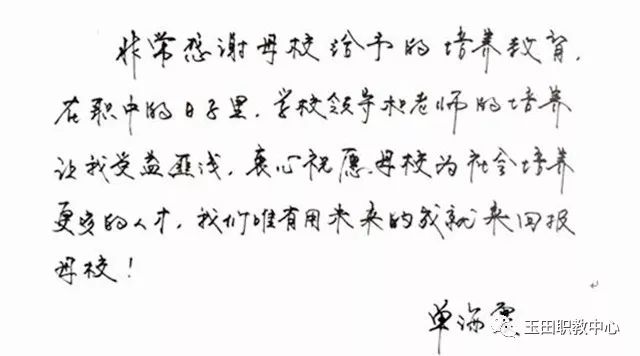 非常感谢母校给予的培养教育,
在职中的日子里,学校领导和老师的培养
让我受益匪浅,衷心祝愿母校为社会培养
更多的人才,我们唯有用未来的成就来回报
母校!
单海
玉田职教中心